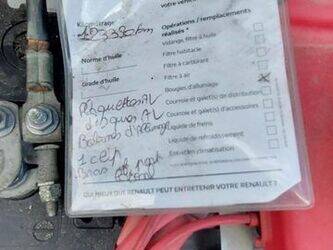 Kilométrage
123380 km
Norme d'huile
Grade d'huile
Opérations / remplacements
réalisés *
Vidange, filtre à huile
Filtre habitacle
Filtre à carburant
Filtre à air
Bougies d'allumage
Courroie et galet(s) de distribution
Courroie et galet(s) d'accessoires
Liquide de freins
Liquide de refroidissement
Entretien climatisation
Plaquettes AV
disques AV
Bobines d'allumage
QUI MIEUX QUE RENAULT PEUT ENTRETENIR VOTRE RENAULT ?